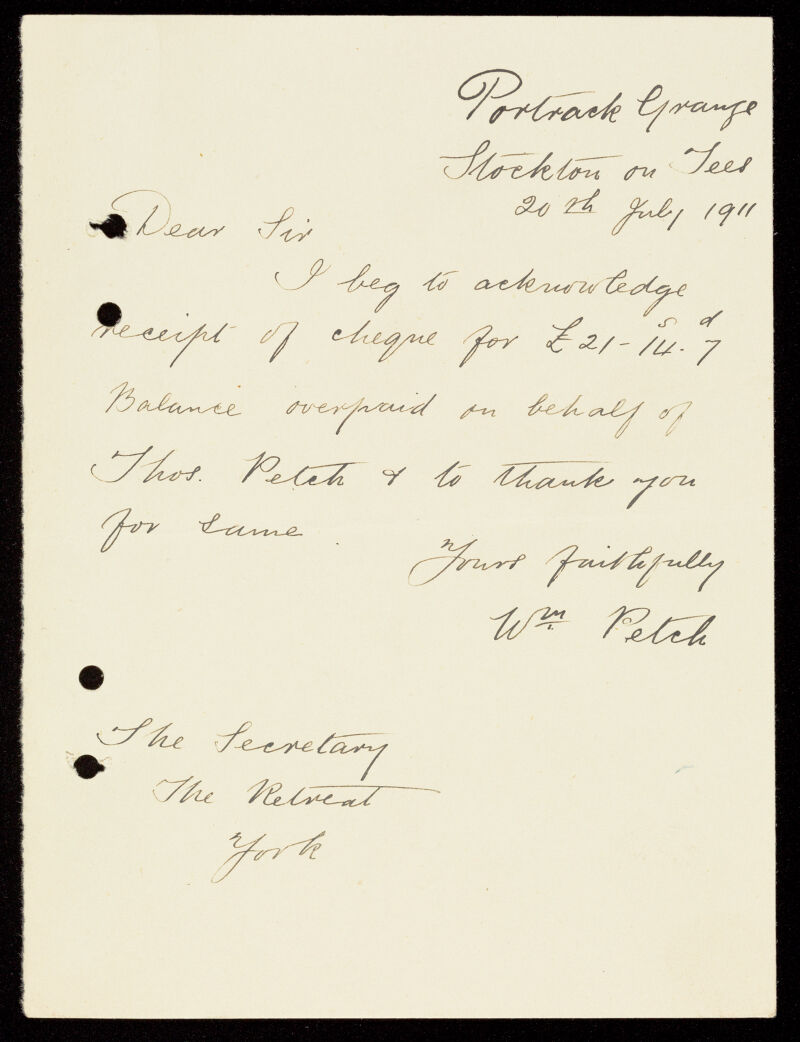 Portrack Grange
Stockton on Tees
20th July 1911
Dear Sir
I beg to acknowledge
receipt of cheque for £21-14s.7d
Balance overpaid on behalf of
Thos. Petch & to thank you
for same.
Yours faithfully
Wm Petch
The Secretary
The Retreat
York